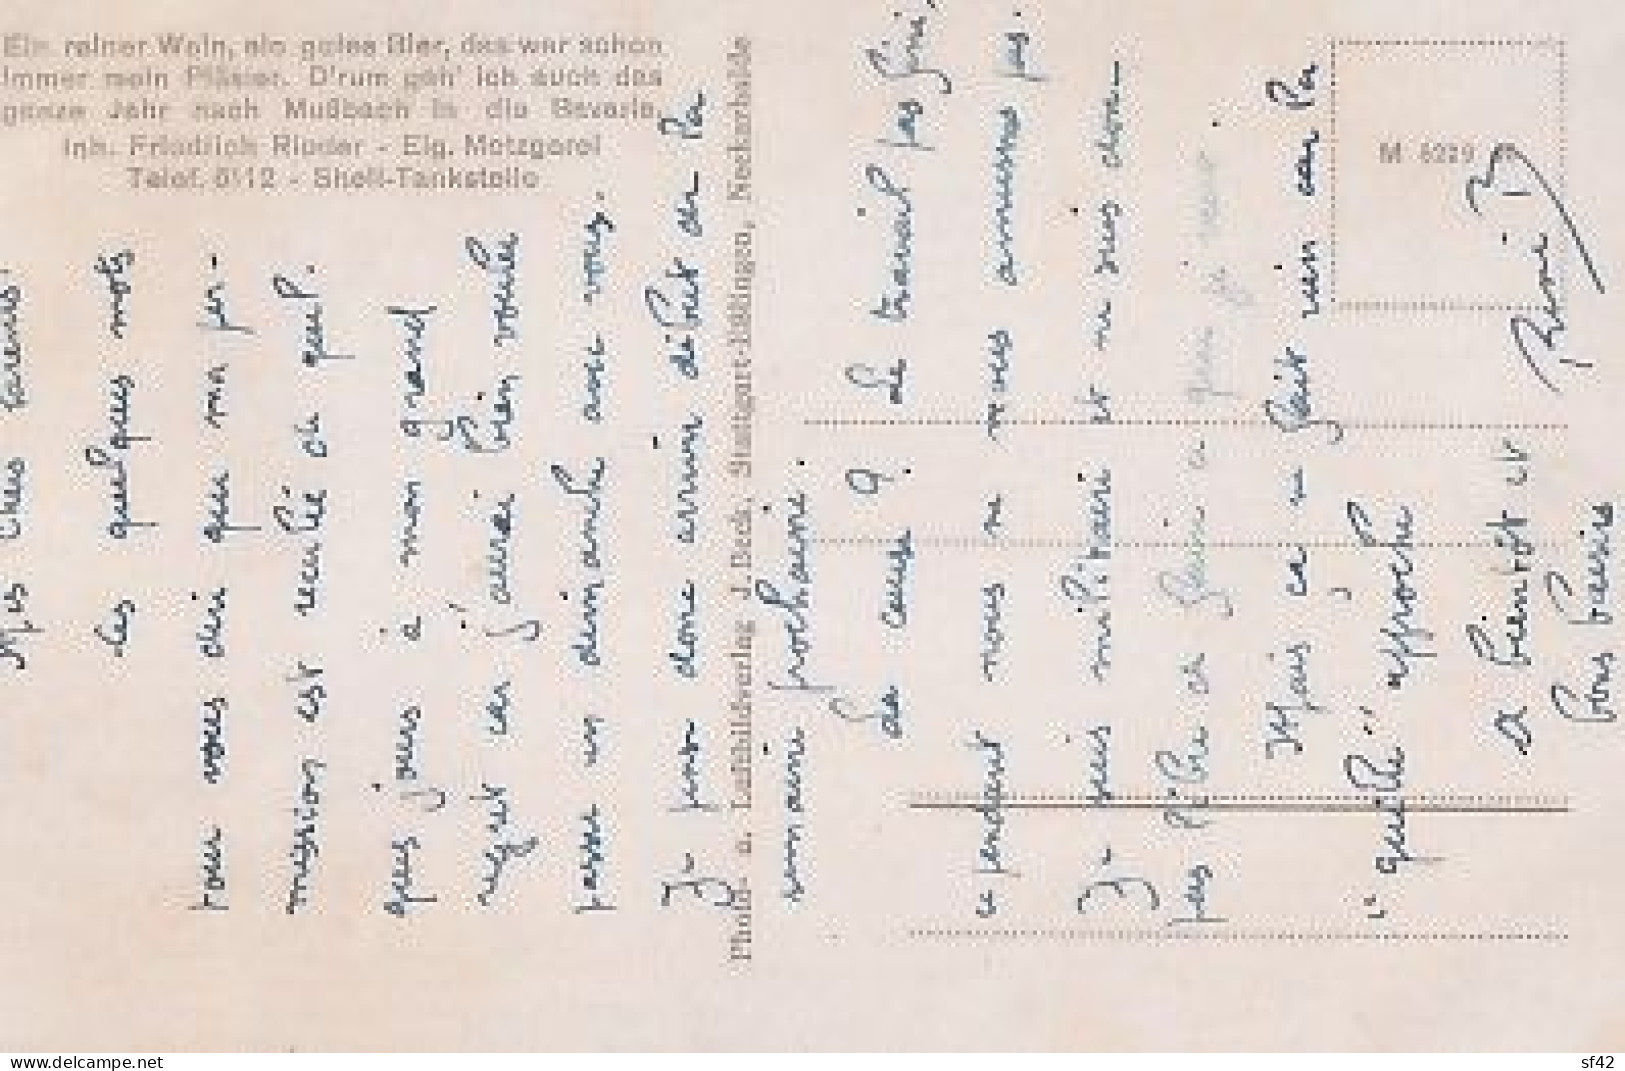 Ein reiner Wein, ein gutes Bier, das war schon
immer mein Pläsier. D'rum geh' ich auch das
ganze Jahr nach Mußbach in die Bavaria.
Inh. Friedrich Rieder - Eig. Metzgerei
Telef. 6112 - Shell-Tankstelle
Photo- u. Luftbildverlag J. Beck, Stuttgart-Eßlingen, Neckarhalde
M 5229
Mes chers parents
Les quelques mots
pour vous dire que ma per-
mission est reculée de quel.
ques jours à mon grand
regret car j'aurai bien voulu
passer un dimanche avec vous.
Je pense donc arriver début de la
semaine prochaine.
La cause ? Le travail pas fini,
cependant nous ne nous amusons pas.
Je suis militaire et ne suis donc
pas libre de faire ce que je veux
Mais ça ne fait rien car la
"quille" approche
A bientôt et
bons baisers
René B
delcampe.net
sf42